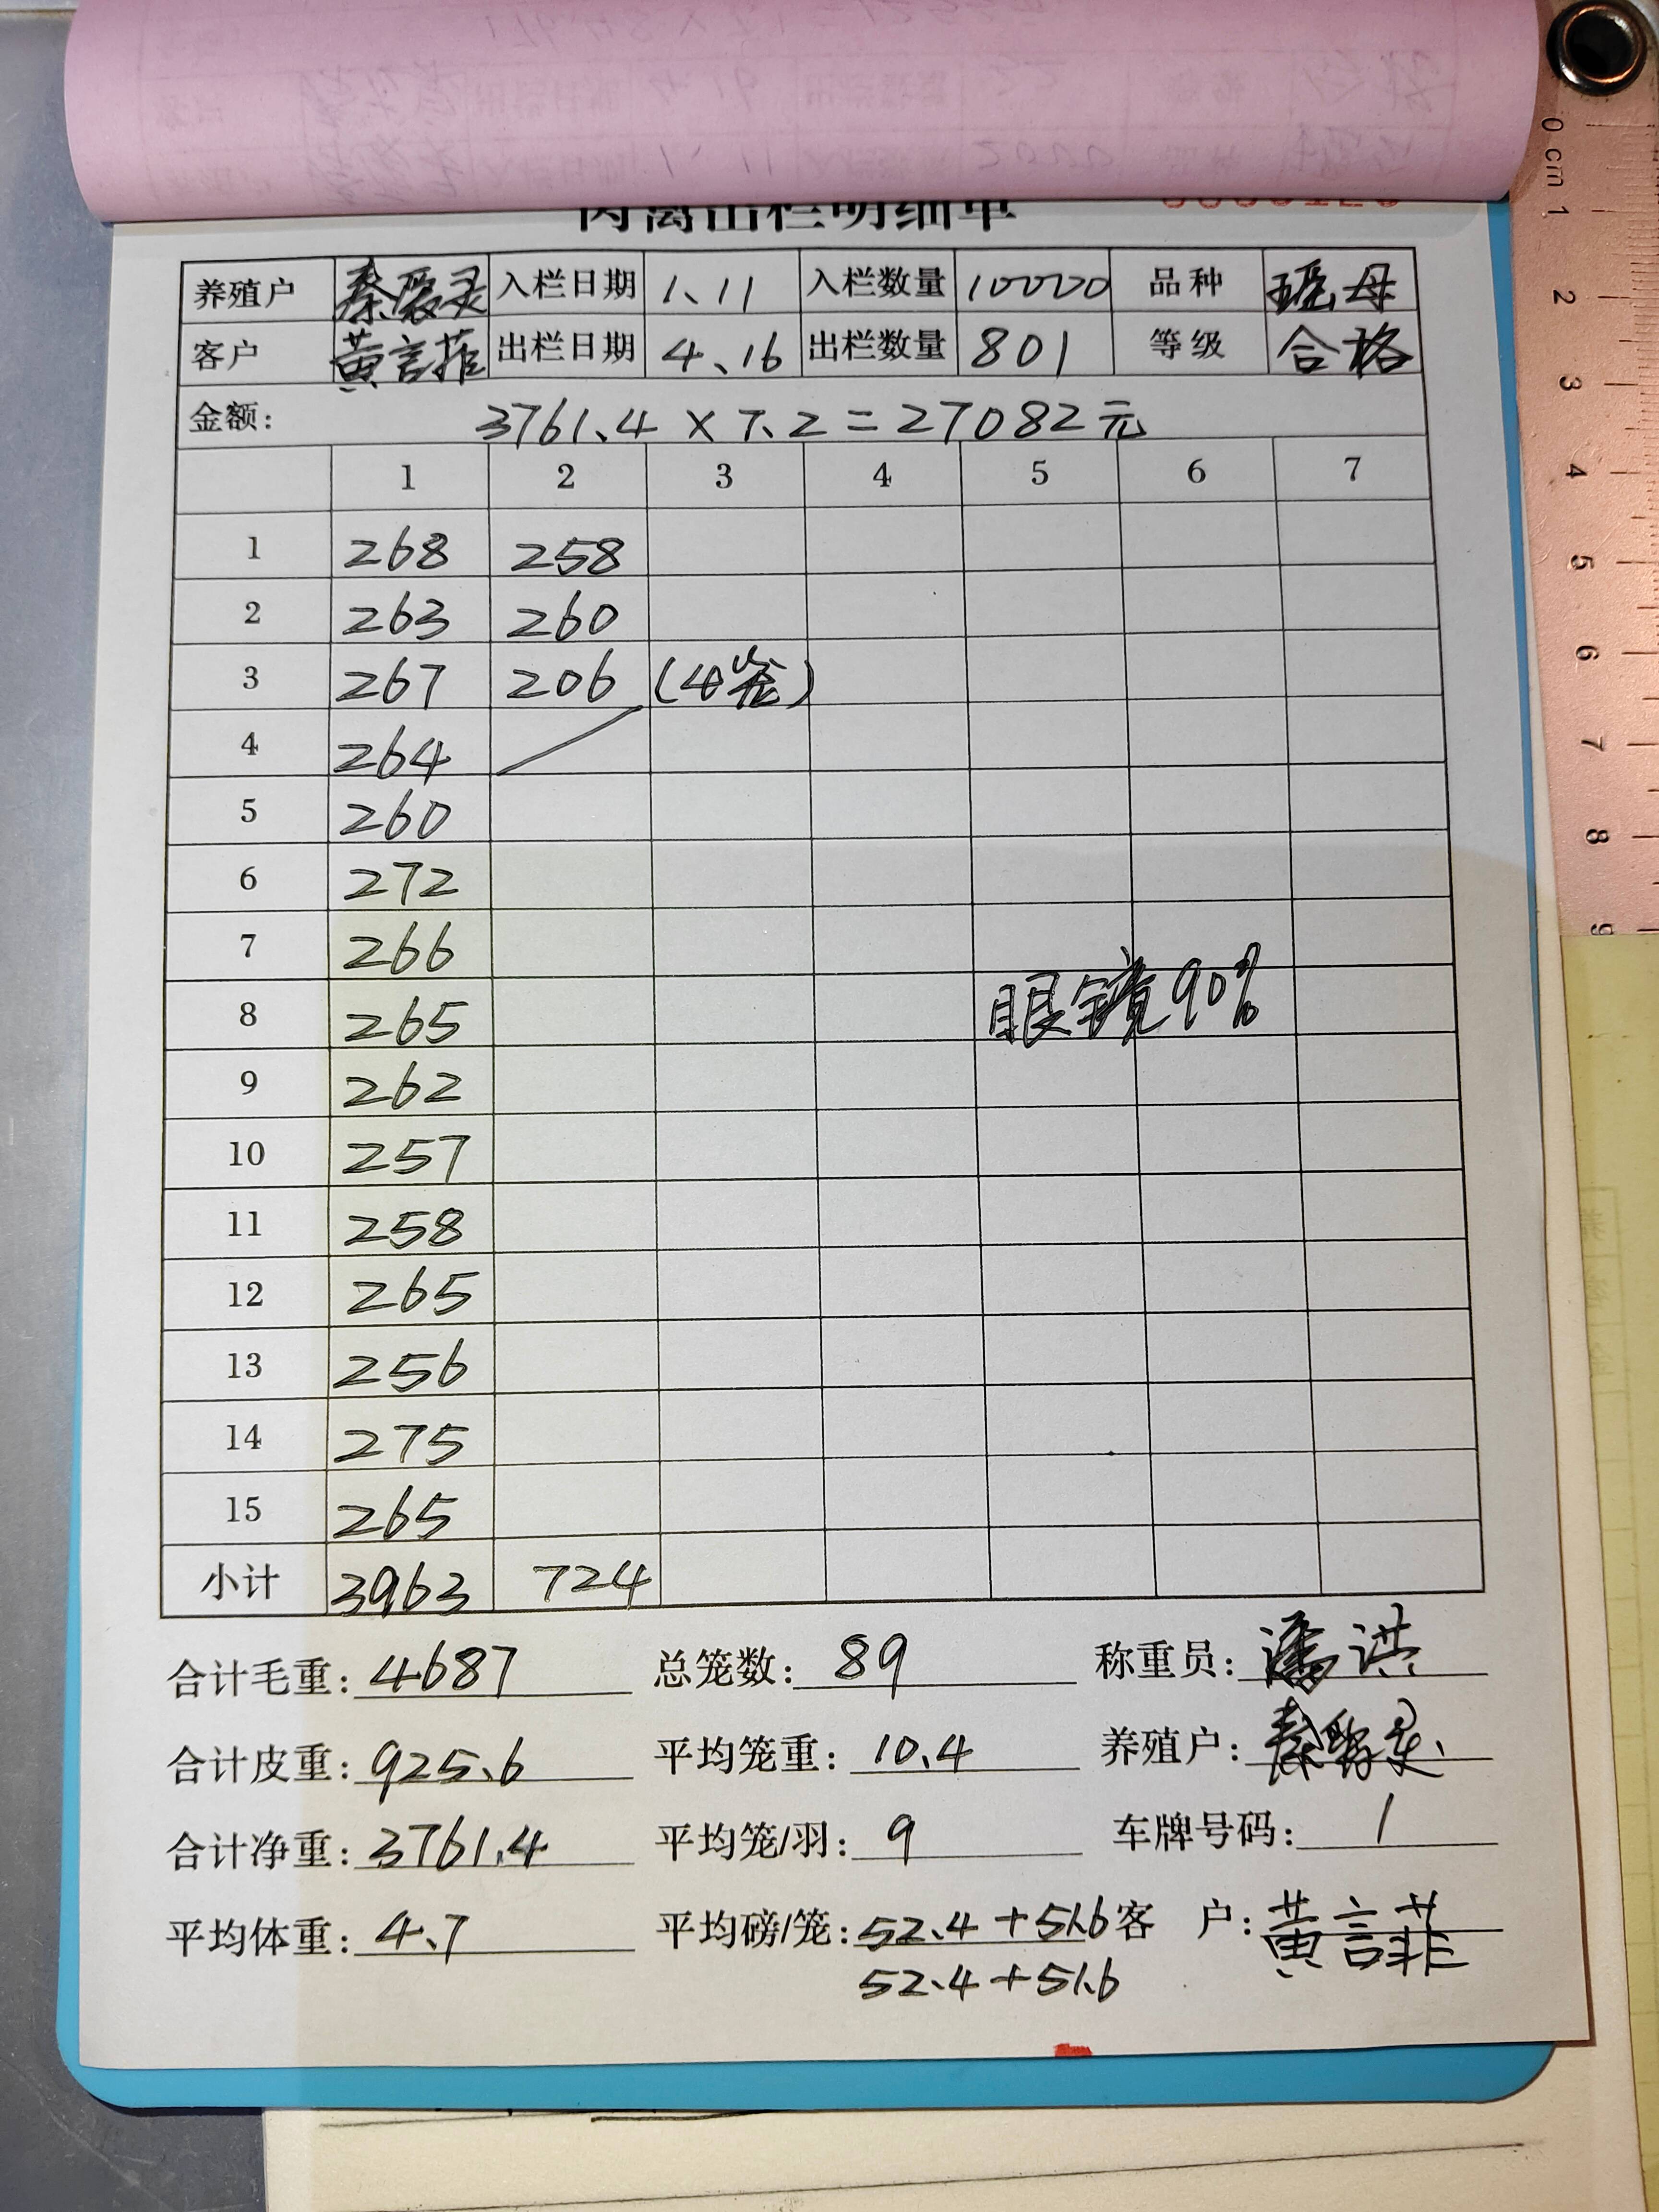 肉禽出栏明细单
养殖户 秦爱灵 入栏日期 1、11 入栏数量 10000 品种 瑶母
客户 黄言菲 出栏日期 4、16 出栏数量 801 等级 合格
金额: 3761.4 × 7.2 = 27082元
1 2 3 4 5 6 7
1 268 258
2 263 260
3 267 206 (4笼)
4 264
5 260
6 272
7 266
8 265 眼镜90%
9 262
10 257
11 258
12 265
13 256
14 275
15 265
小计 3963 724
合计毛重: 4687 总笼数: 89 称重员: 潘洪
合计皮重: 925.6 平均笼重: 10.4 养殖户: 秦爱灵
合计净重: 3761.4 平均笼/羽: 9 车牌号码: 1
平均体重: 4.7 平均磅/笼: 52.4+51.6 客 户: 黄言菲
52.4+51.6
0 cm 1 2 3 4 5 6 7 8 9